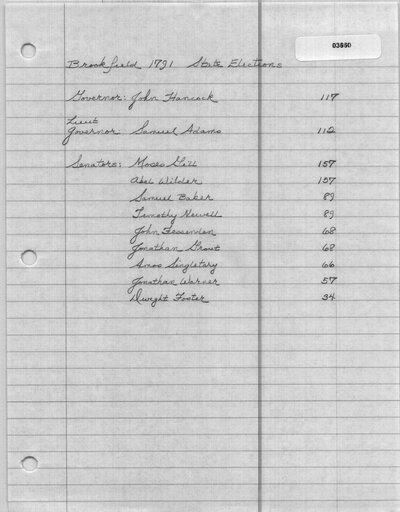 03550
Brookfield 1791 State Elections
Governor: John Hancock 117
Lieut
Governor Samuel Adams 112
Senators: Moses Gill 157
Abel Wilder 157
Samuel Baker 89
Timothy Newell 89
John Fessenden 68
Jonathan Grout 68
Amos Singletary 66
Jonathan Warner 57
Dwight Foster 34